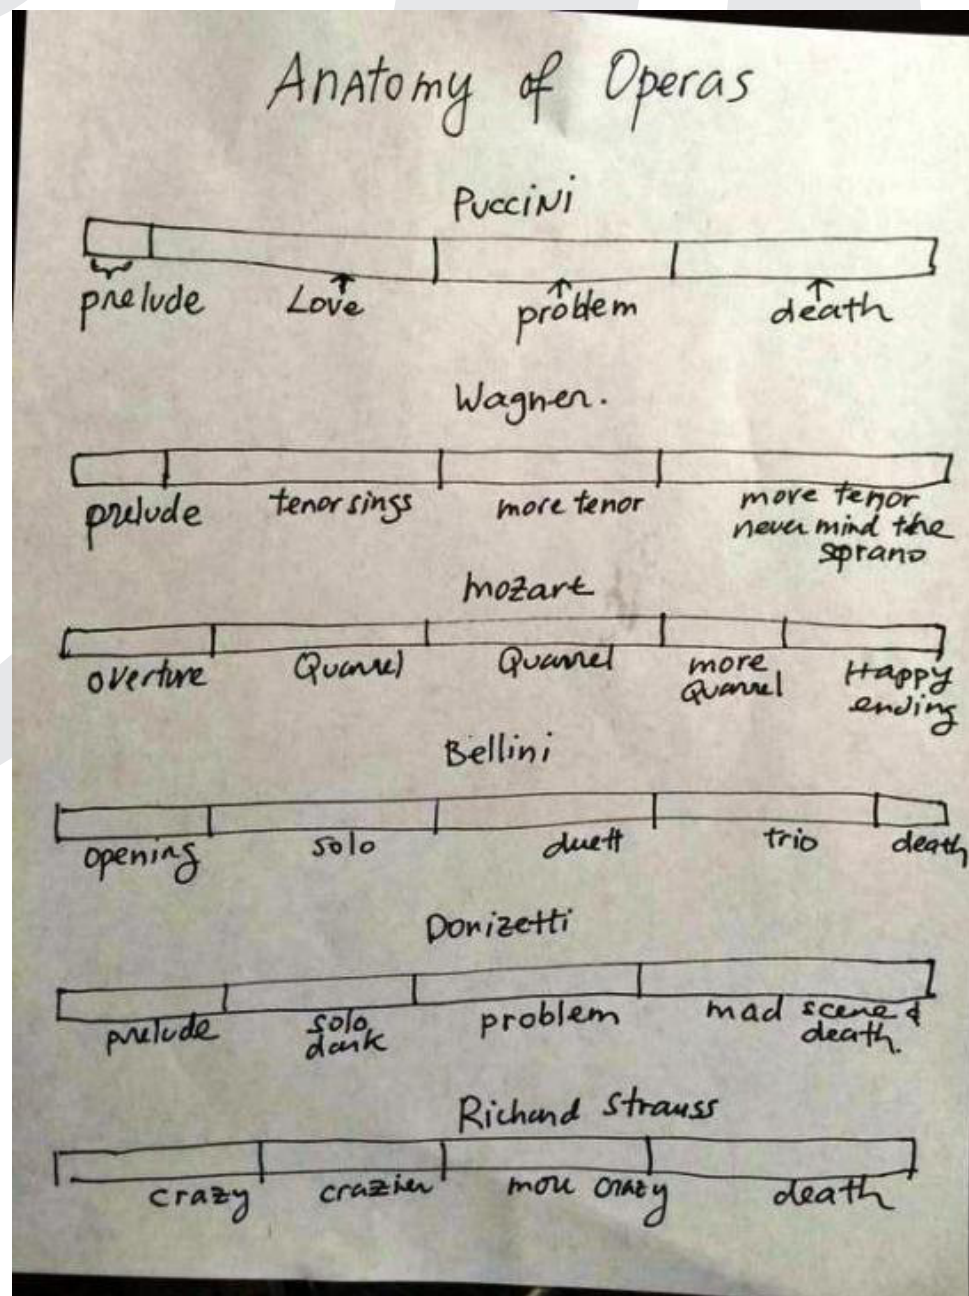 Anatomy of Operas
Puccini
prelude Love problem death
Wagner.
prelude tenor sings more tenor more tenor
never mind the
soprano
Mozart
overture Quarrel Quarrel more Happy
Quarrel ending
Bellini
opening solo duett trio death
Donizetti
prelude solo problem mad scene &
dark death.
Richard Strauss
crazy crazier more crazy death